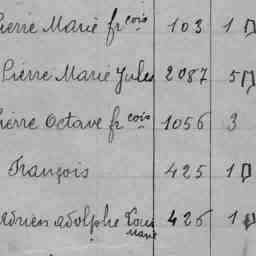 Pierre Marie fr çois 103 1
Pierre Marie Jules 2087 5
Pierre Octave fr çois 1056 3
François 425 1
Adrien Adolphe Louis 426 1
Marie